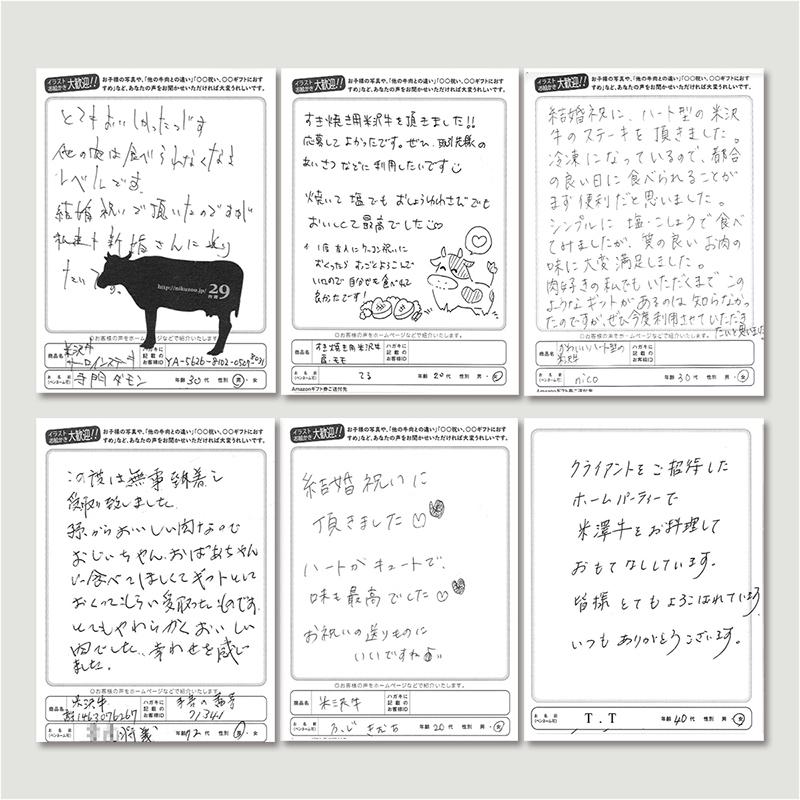 イラスト
お絵かき 大歓迎!!
お子様の写真や、「他の牛肉との違い」「〇〇祝い、〇〇ギフトにおす
すめ」など、あなたの声をお聞かせいただければ大変うれしいです。
とてもおいしかったです
他の肉は食べられなくなる
レベルです。
結婚祝いで頂いたのですが
私達も新婚さんに送り
たいです。
http://nikuzoo.jp/ 29
◎お客様の声をホームページなどで紹介いたします。
商品名
米沢牛
サーロインステーキ
ハガキに
記載の
お客様ID
お名前
(ペンネーム可)
寺門ダモン
年齢 30 代 性別 男・女
イラスト
お絵かき 大歓迎!!
お子様の写真や、「他の牛肉との違い」「〇〇祝い、〇〇ギフトにおす
すめ」など、あなたの声をお聞かせいただければ大変うれしいです。
すき焼き用米沢牛を頂きました!!
応募してよかったです。ぜひ、取引先様の
あいさつなどに利用したいです
焼いて塩でもおしょうゆわさびでも
おいしくて最高でした
◎お客様の声をホームページなどで紹介いたします。
商品名
すき焼き用米沢牛
肩・モモ
ハガキに
記載の
お客様ID
お名前
(ペンネーム可)
てる
年齢 20 代 性別 男・女
Amazonギフト券ご送付先
イラスト
お絵かき 大歓迎!!
お子様の写真や、「他の牛肉との違い」「〇〇祝い、〇〇ギフトにおす
すめ」など、あなたの声をお聞かせいただければ大変うれしいです。
結婚祝に、ハート型の米沢
牛のステーキを頂きました。
冷凍になっているので、都合
の良い日に食べられることが
まず便利だと思いました。
シンプルに塩・こしょうで食べ
てみましたが、質の良いお肉の
味に大変満足しました。
肉好きの私でもいただくまでこの
ようなギフトがあるのは知らなかっ
たのですが、ぜひ今度利用させていただき
たいと思いました
◎お客様の声をホームページなどで紹介いたします。
商品名
かわいいハート型の
米沢牛
ハガキに
記載の
お客様ID
お名前
(ペンネーム可)
nico
年齢 30 代 性別 男・女
Amazonギフト券ご送付先
イラスト
お絵かき 大歓迎!!
お子様の写真や、「他の牛肉との違い」「〇〇祝い、〇〇ギフトにおす
すめ」など、あなたの声をお聞かせいただければ大変うれしいです。
この度は無事到着し
受取り致しました。
孫からおいしい肉なので
おじいちゃん、おばあちゃん
に食べてほしくてギフトとして
おくってもらい受取ったものです。
とてもやわらかくおいしい
肉でした、幸わせを感じ
ました。
◎お客様の声をホームページなどで紹介いたします。
商品名
米沢牛
ハガキに
記載の
お客様ID
71341
お名前
(ペンネーム可)
年齢 72 代 性別 男・女
イラスト
お絵かき 大歓迎!!
お子様の写真や、「他の牛肉との違い」「〇〇祝い、〇〇ギフトにおす
すめ」など、あなたの声をお聞かせいただければ大変うれしいです。
結婚祝いに
頂きました
ハートがキュートで、
味も最高でした
お祝いの送りものに
いいですね
◎お客様の声をホームページなどで紹介いたします。
商品名
米沢牛
ハガキに
記載の
お客様ID
お名前
(ペンネーム可)
年齢 20 代 性別 男・女
Amazonギフト券ご送付先
クライアントをご招待した
ホームパーティーで
米澤牛をお料理して
おもてなししています。
皆様とてもよろこばれています
いつもありがとうございます。
お名前
(ペンネーム可)
T.T
年齢 40 代 性別 男・女